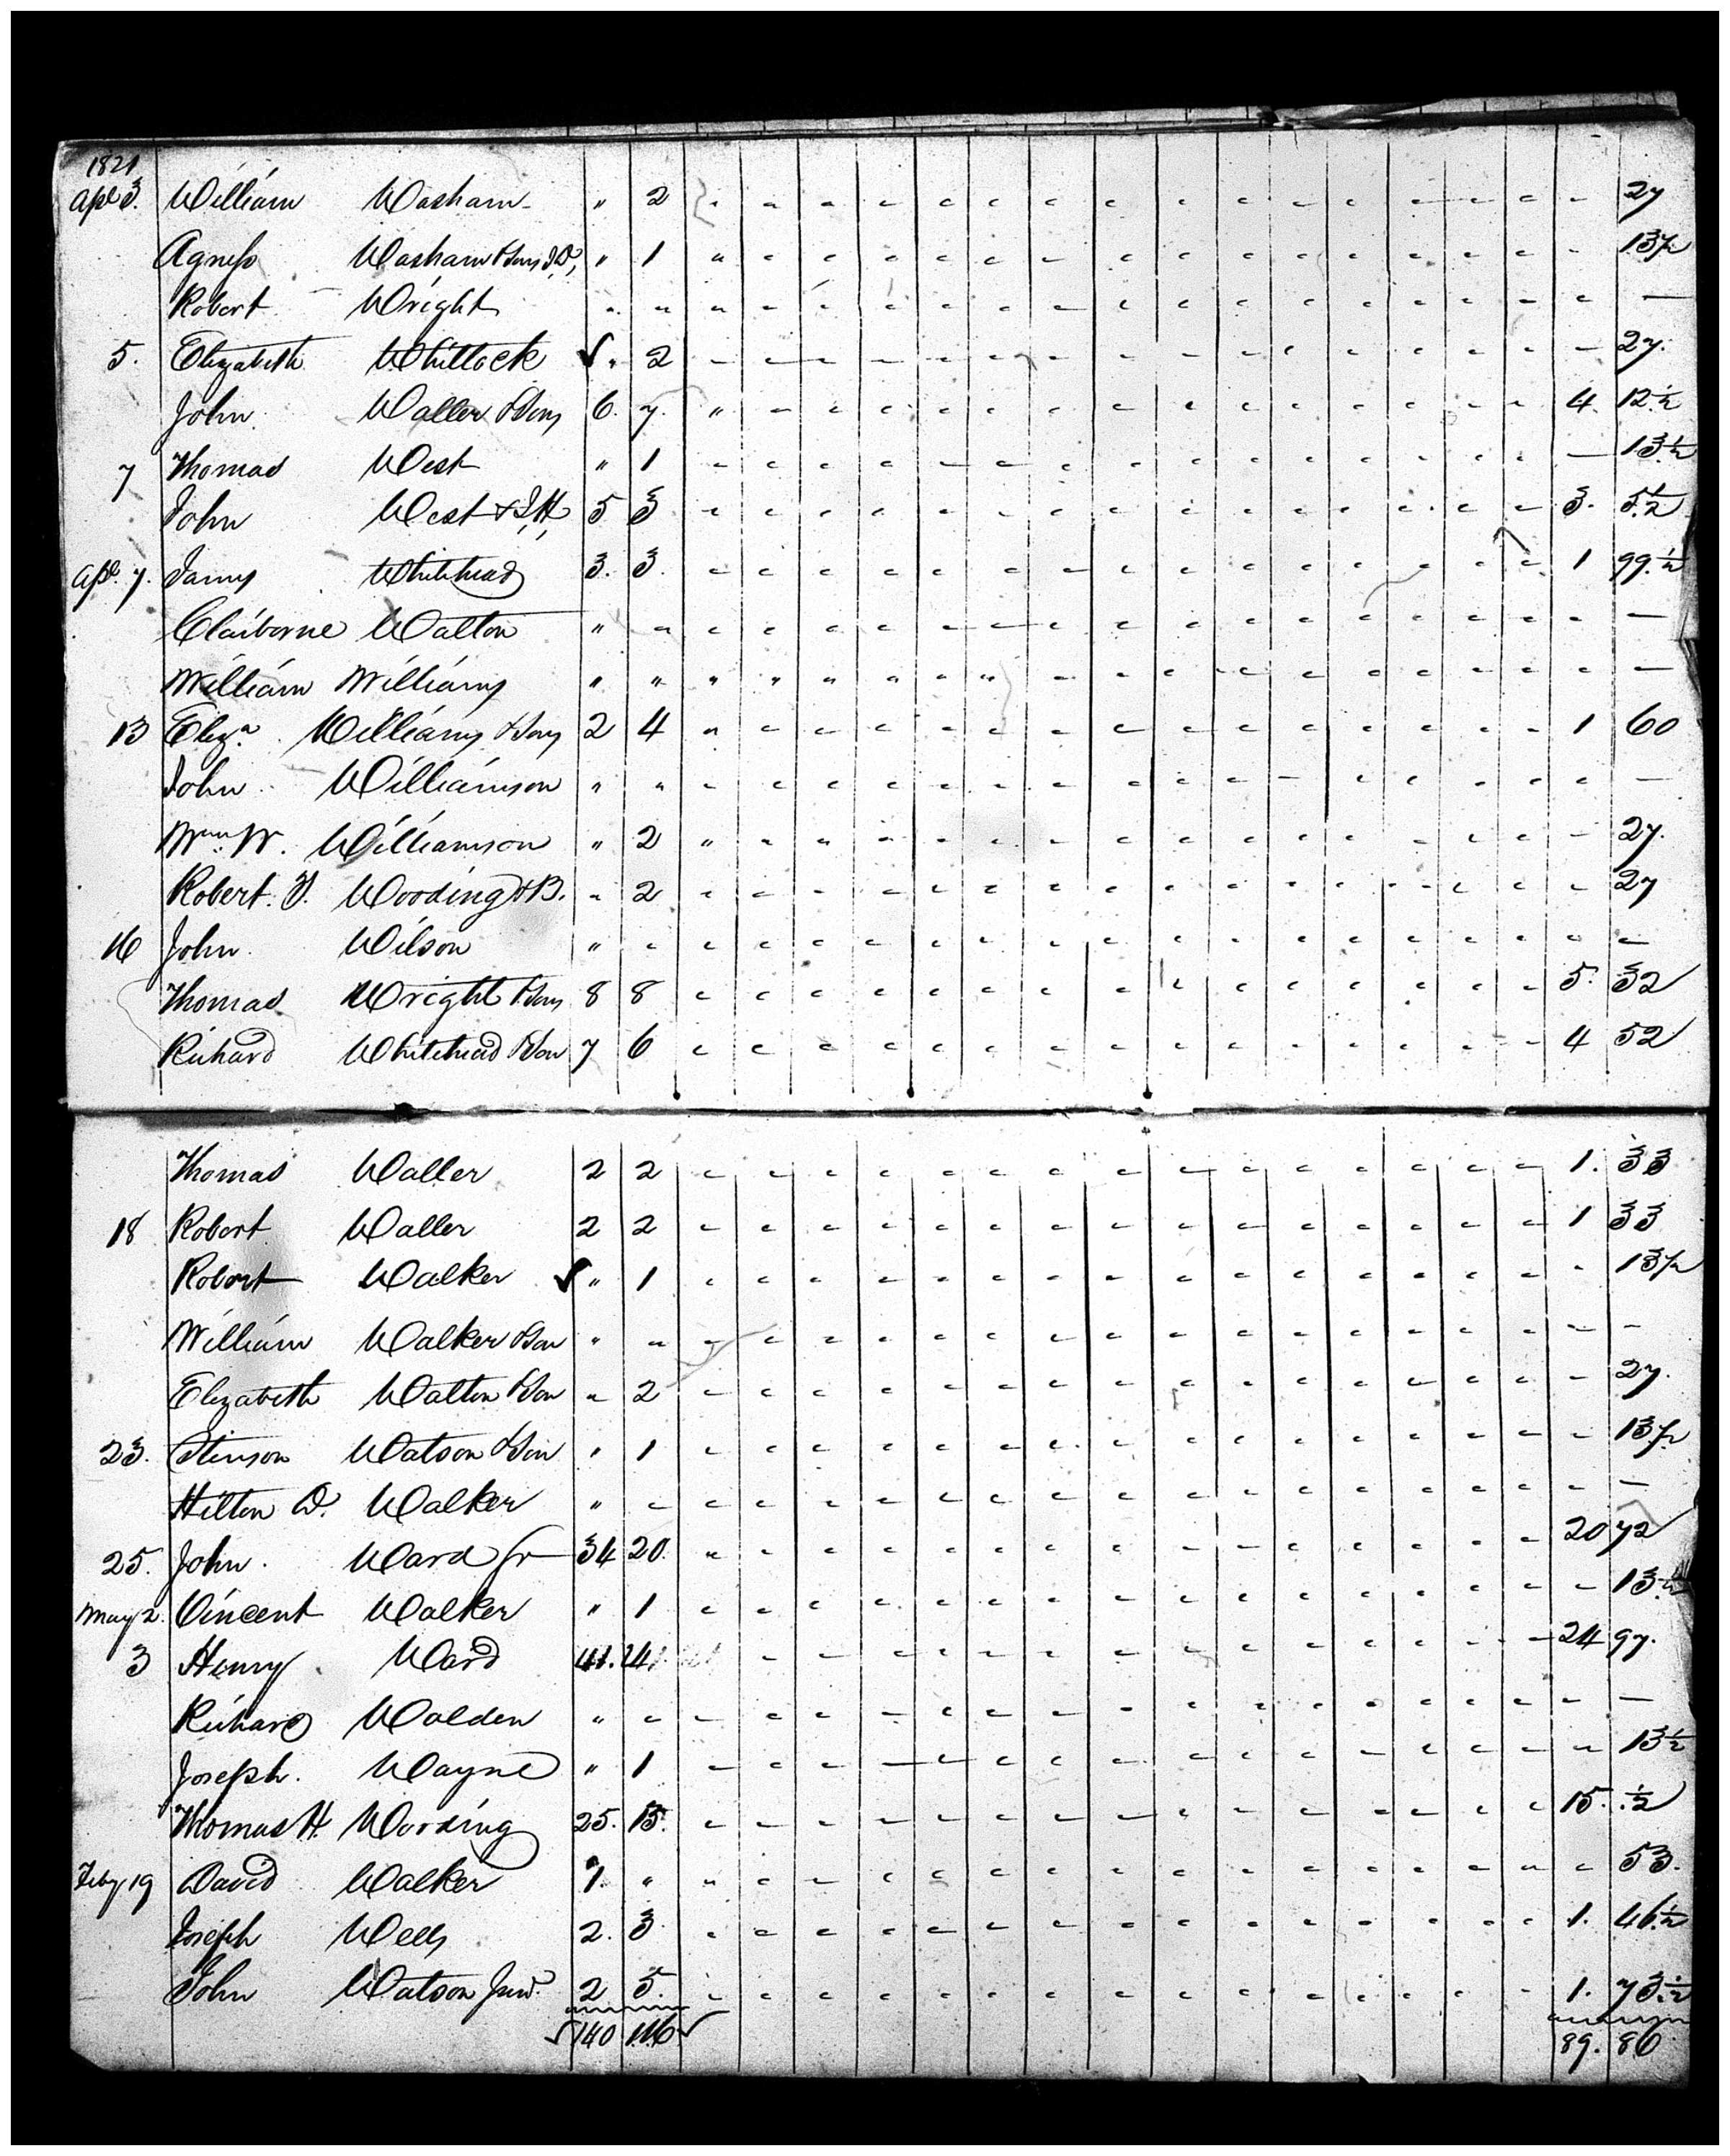 1821
Apl 3. William Washam " 2 27
Agness Washam & Sons J.D. " 1 13½
Robert Wright " " —
5. Elizabeth Whitlock ✓ " 2 27.
John Waller & Sons 6. 7. 4. 12½
7 Thomas West " 1 13½
John West & J.H. 5 3 3. 5½
Apl. 7. James Whitehead 3. 3. 1 99½
Claiborne Walton " " —
William Williams " " —
13 Eliza. Williams & Sons 2 4 1 60
John Williamson " " —
Wm. W. Williamson " 2 27.
Robert. Wooding & B. " 2 27
16 John Wilson " " —
Thomas Wright & Sons 8 8 5. 32
Richard Whitehead & Son 7 6 4 52
Thomas Waller 2 2 1. 33
18 Robert Waller 2 2 1 33
Robert Walker ✓ " 1 13½
William Walker & Son " " -
Elizabeth Walton & Son " 2 27.
23. Stinson Watson & Son " 1 13½
Hilton D. Walker " " —
25. John Ward Sr 34 20. 20 72
May 2. Vincent Walker " 1 13½
3 Henry Ward 41. 24 97.
Richard Walden " " —
Joseph. Wayne " 1 13½
Thomas H. Wooding 25. 15. 15. .½
Feby 19 David Walker 7. " 53.
Joseph Wells 2. 3. 1. 46½
John Watson Junr. 2 5. 1. 73½
✓ 140 116 ✓ 89. 86